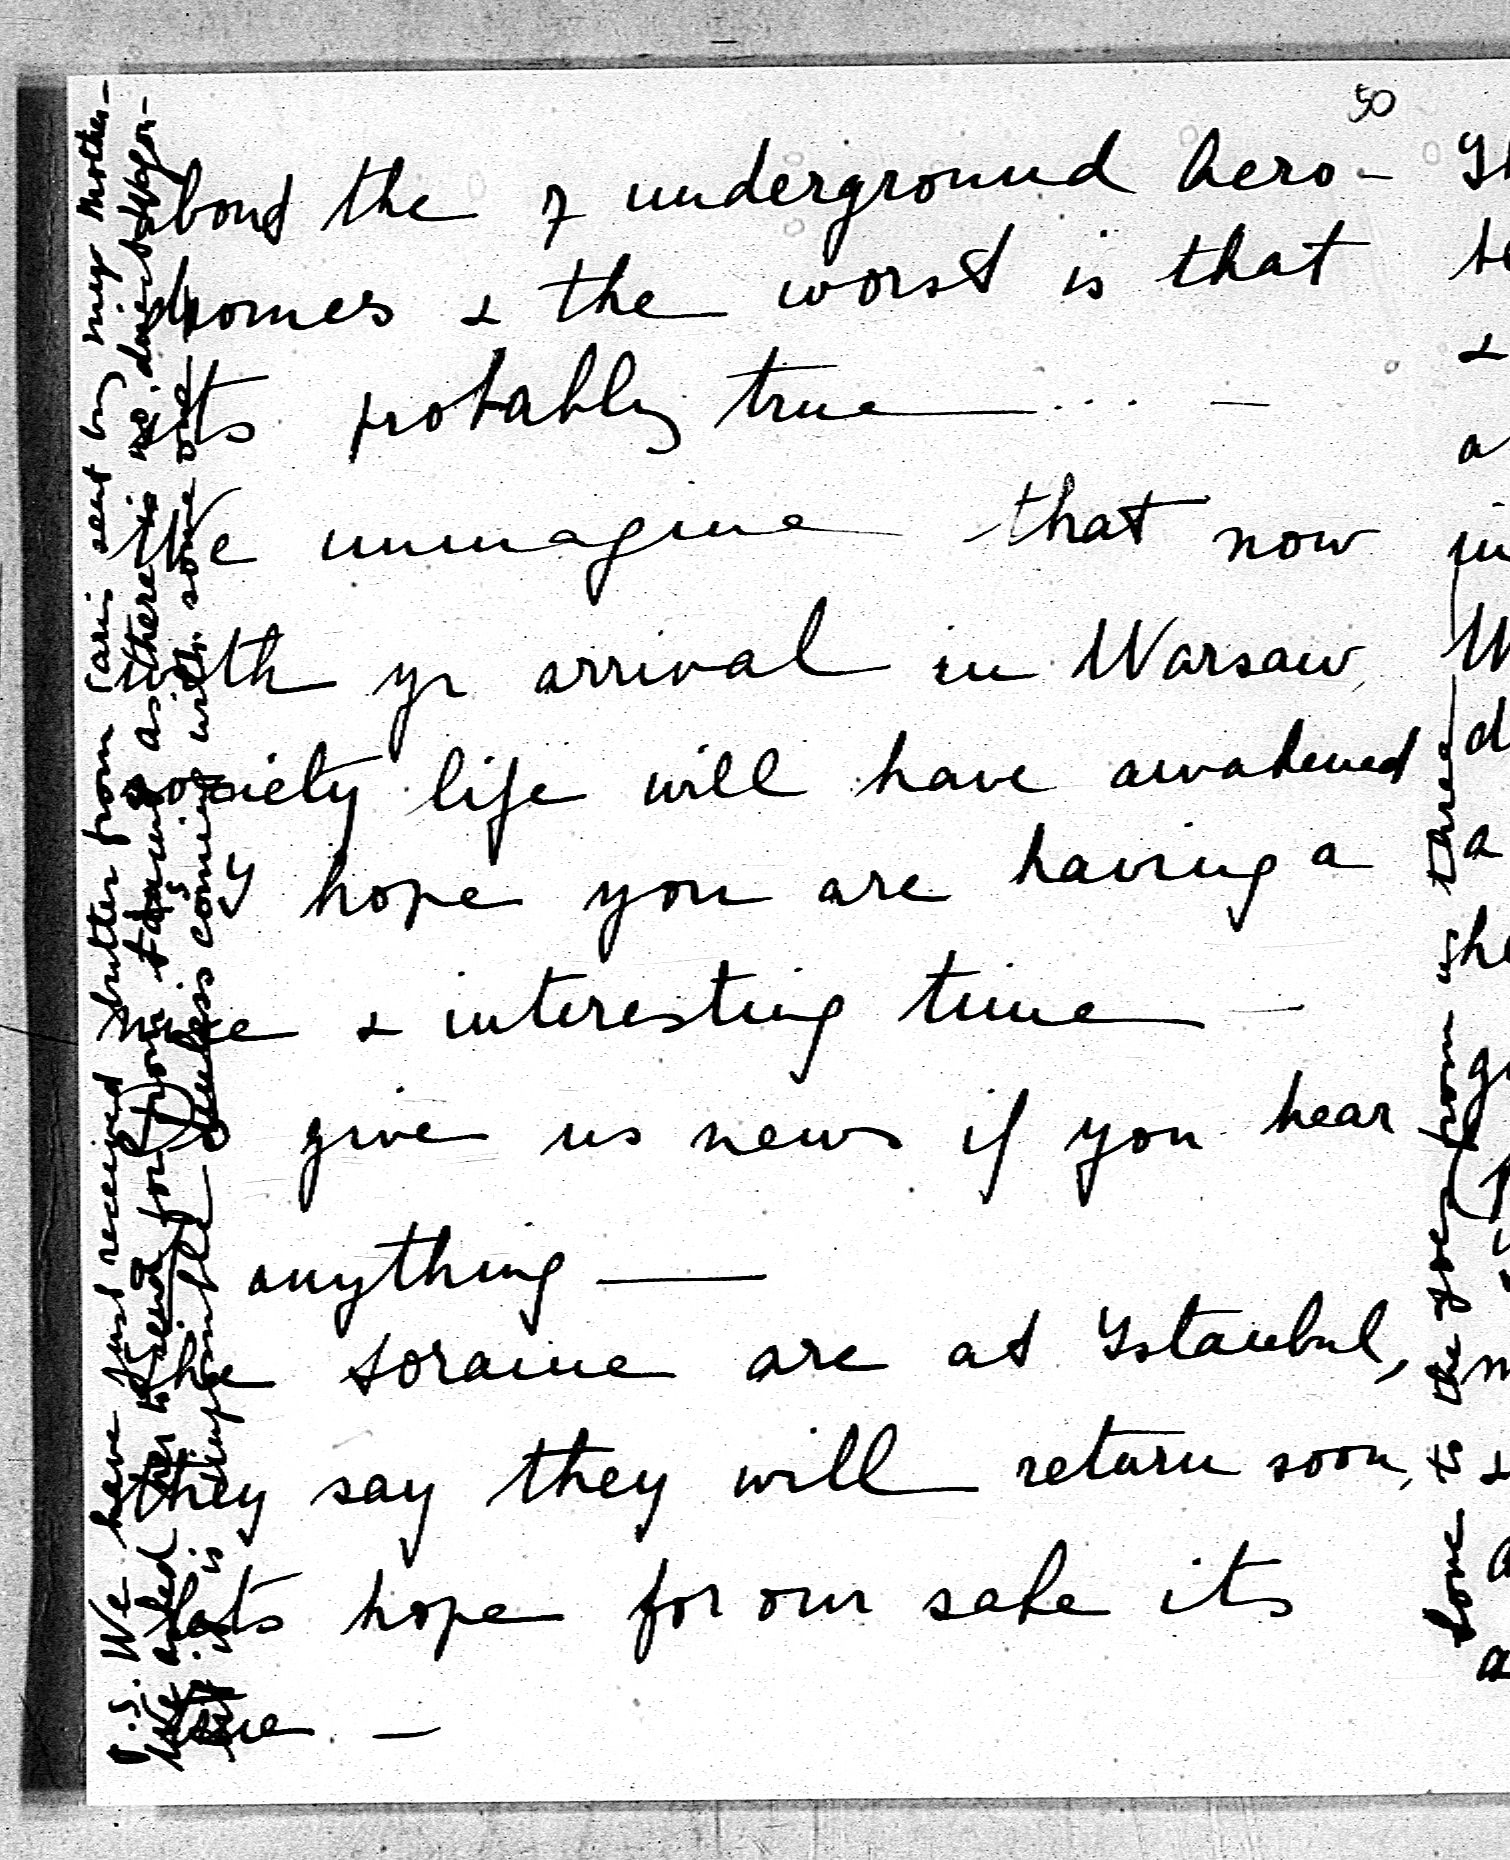 50
about the 7 underground Aero-
dromes & the worst is that
its probably true —... —
We immagine that now
with yr arrival in Warsaw,
society life will have awakened
I hope you are having a
nice & interesting time —
Do give us news if you hear
anything —
The are at Istanbul,
they say they will return soon,
lets hope for our sake its
true. —
P.S. We have just received letter from Paris sent by my Mother-
We asked her to send for you as there is no direct
it is impossible unless coming with some one
Love to the you from us three